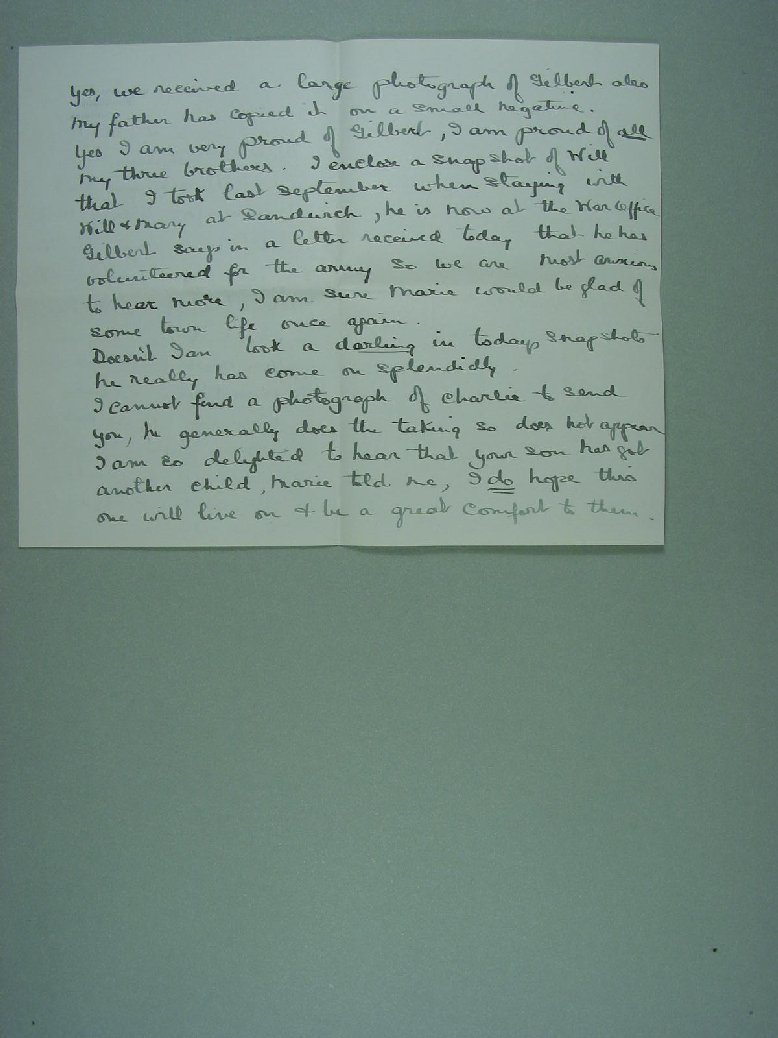 Yes, we received a large photograph of Gilbert also
my father has copied it on a small negative.
Yes I am very proud of Gilbert, I am proud of all
my three brothers. I enclose a snapshot of Will
that I took last September when staying with
Will & Mary at Sandwich, he is now at the War Office
Gilbert says in a letter received today that he has
volunteered for the army so we are most anxious
to hear more, I am sure Marie would be glad of
some town life once again.
Doesn't Ian look a darling in todays snapshots
he really has come on splendidly.
I cannot find a photograph of Charlie to send
you, he generally does the taking so does not appear
I am so delighted to hear that your son has got
another child, Marie told me, I do hope this
one will live on & be a great comfort to them.